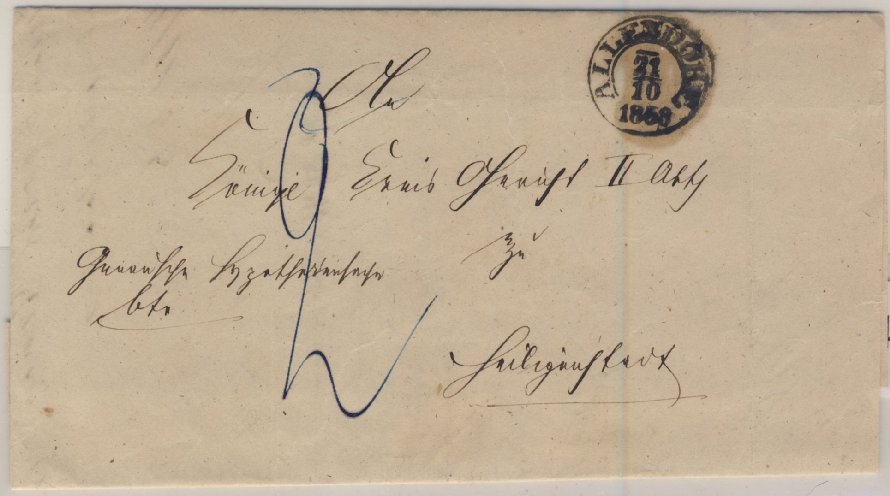 ALLENDORF
21
10
1858
An
Königl Kreis Gericht II Abth
zu
Hypothekensache
btr
Heiligenstadt
2